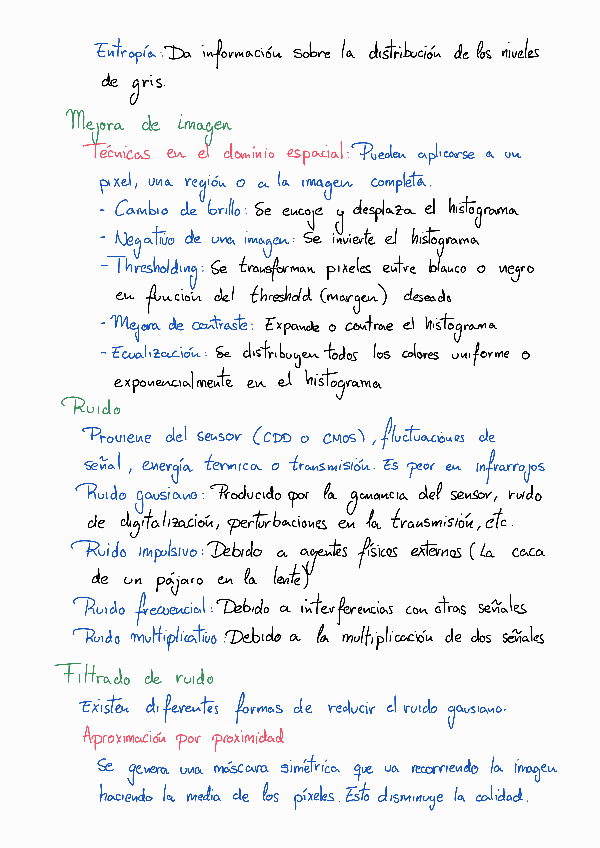 Entropía: Da información sobre la distribución de los niveles
de gris.
Mejora de imagen
Técnicas en el dominio espacial: Pueden aplicarse a un
pixel, una región o a la imagen completa.
- Cambio de brillo: Se encoje y desplaza el histograma
- Negativo de una imagen: Se invierte el histograma
- Thresholding: Se transforman pixeles entre blanco o negro
en función del threshold (margen) deseado
- Mejora de contraste: Expande o contrae el histograma
- Ecualización: Se distribuyen todos los colores uniforme o
exponencialmente en el histograma
Ruido
Proviene del sensor (CDD o CMOS), fluctuaciones de
señal, energía termica o transmisión. Es peor en infrarrojos
Ruido gausiano: Producido por la ganancia del sensor, ruido
de digitalización, perturbaciones en la transmisión, etc.
Ruido impulsivo: Debido a agentes físicos externos (La caca
de un pájaro en la lente)
Ruido frecuencial: Debido a interferencias con otras señales
Ruido multiplicativo: Debido a la multiplicación de dos señales
Filtrado de ruido
Existen diferentes formas de reducir el ruido gausiano.
Aproximación por proximidad
Se genera una máscara simétrica que va recorriendo la imagen
haciendo la media de los píxeles. Esto disminuye la calidad.